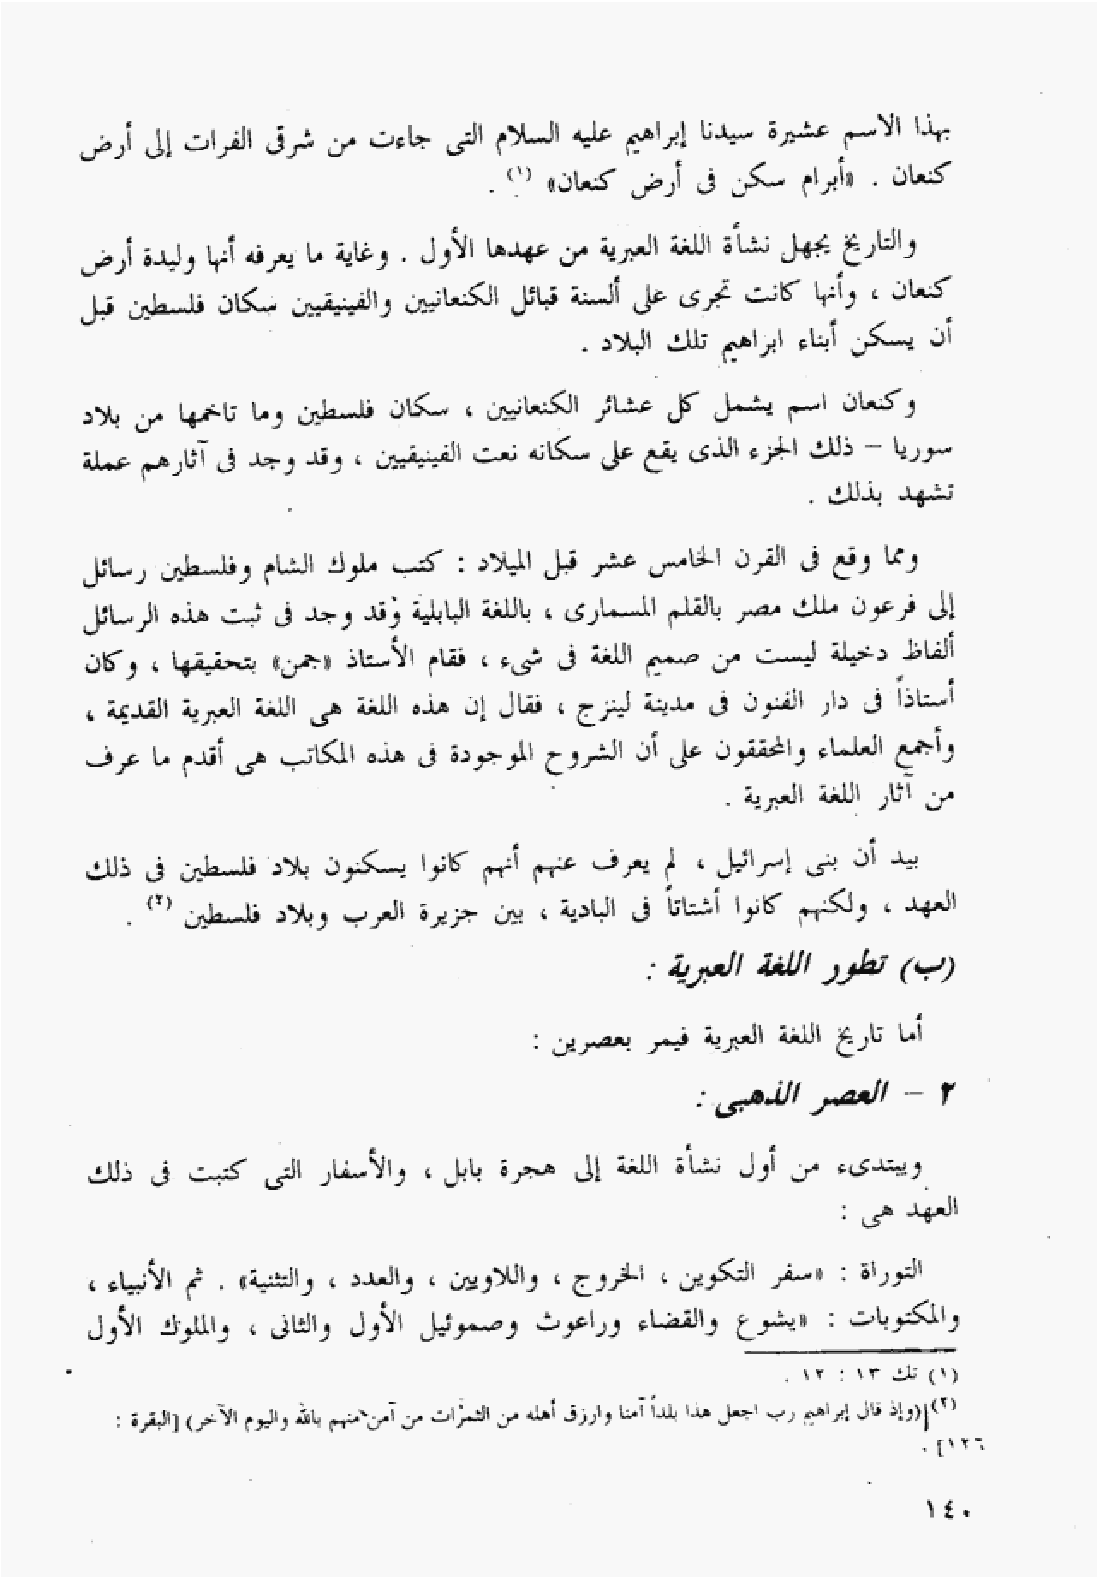 بهذا الاسم عشيرة سيدنا إبراهيم عليه السلام التى جاءت من شرقى الفرات إلى أرض
كنعان . «أبرام سكن فى أرض كنعان» (١) .
والتاريخ يجهل نشأة اللغة العبرية من عهدها الأول . وغاية ما يعرفه أنها وليدة أرض
كنعان ، وأنها كانت تجرى على ألسنة قبائل الكنعانيين والفينيقيين سكان فلسطين قبل
أن يسكن أبناء ابراهيم تلك البلاد .
وكنعان اسم يشمل كل عشائر الكنعانيين ، سكان فلسطين وما تاخمها من بلاد
سوريا – ذلك الجزء الذى يقع على سكانه نعت الفينيقيين ، وقد وجد فى آثارهم عملة
تشهد بذلك .
ومما وقع فى القرن الخامس عشر قبل الميلاد : كتب ملوك الشام وفلسطين رسائل
إلى فرعون ملك مصر بالقلم المسمارى ، باللغة البابلية وقد وجد فى ثبت هذه الرسائل
ألفاظ دخيلة ليست من صميم اللغة فى شىء ، فقام الأستاذ «جمن» بتحقيقها ، وكان
أستاذاً فى دار الفنون فى مدينة لينزج ، فقال إن هذه اللغة هى اللغة العبرية القديمة ،
وأجمع العلماء والمحققون على أن الشروح الموجودة فى هذه المكاتب هى أقدم ما عرف
من آثار اللغة العبرية .
بيد أن بنى إسرائيل ، لم يعرف عنهم أنهم كانوا يسكنون بلاد فلسطين فى ذلك
العهد ، ولكنهم كانوا أشتاتاً فى البادية ، بين جزيرة العرب وبلاد فلسطين (٢) .
(ب) تطور اللغة العبرية :
أما تاريخ اللغة العبرية فيمر بعصرين :
٢ – العصر الذهبى :
ويبتدىء من أول نشأة اللغة إلى هجرة بابل ، والأسفار التى كتبت فى ذلك
العهد هى :
التوراة : «سفر التكوين ، الخروج ، واللاويين ، والعدد ، والتثنية» . ثم الأنبياء ،
والمكتوبات : «يشوع والقضاء وراعوث وصموئيل الأول والثانى ، والملوك الأول
(١) تك ١٣ : ١٢ .
(٢) (وإذ قال إبراهيم رب اجعل هذا بلداً آمنا وارزق أهله من الثمرات من آمن منهم بالله واليوم الآخر) [البقرة :
١٢٦] .
١٤٠